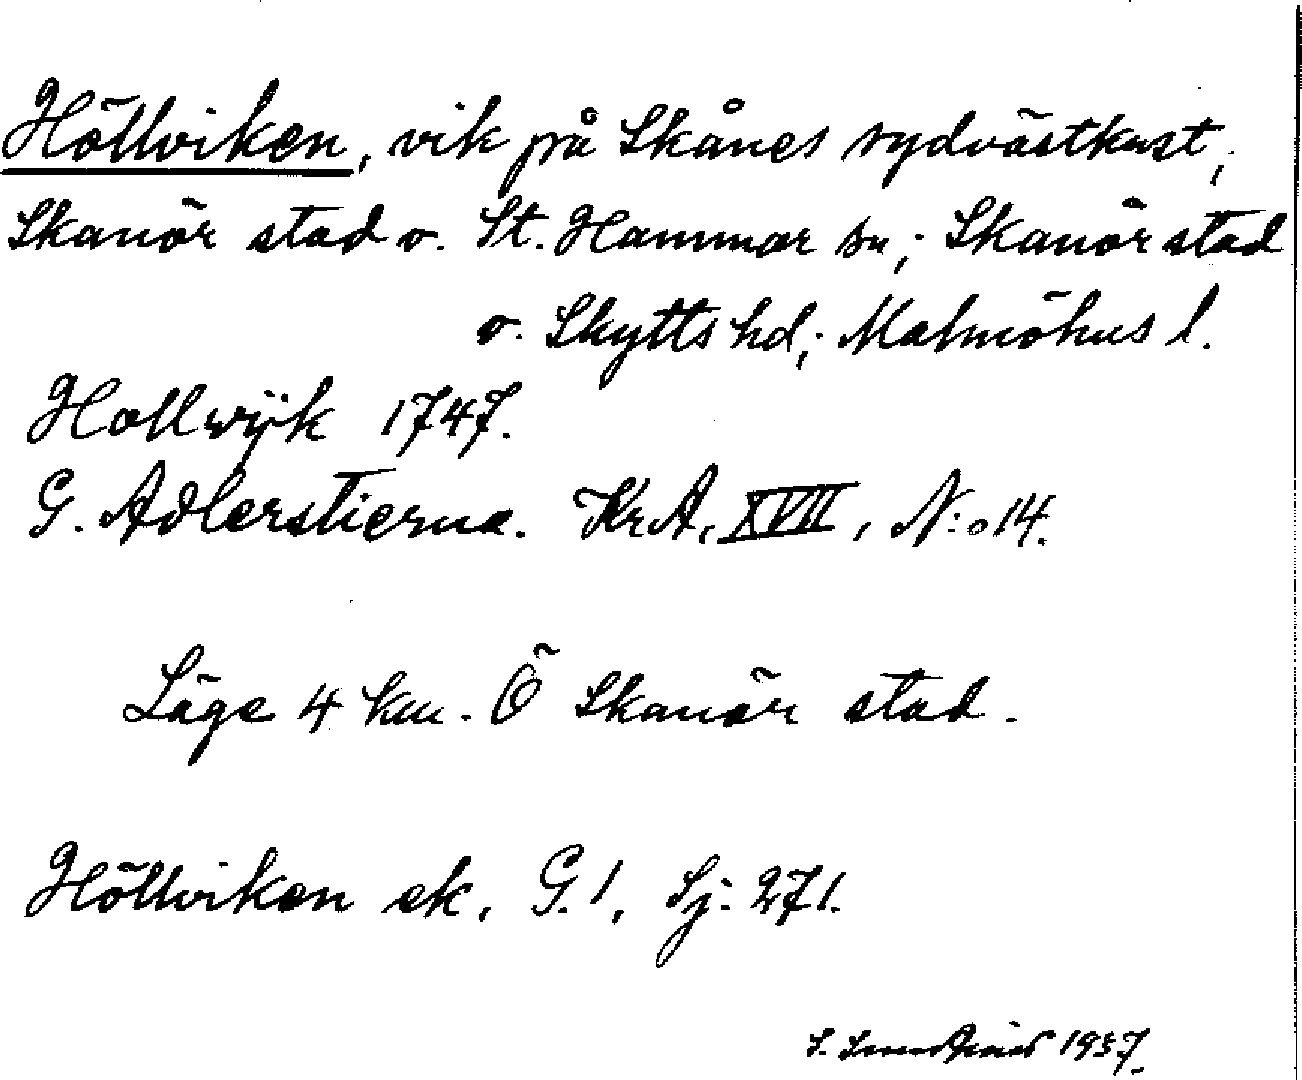 Höllviken, vik på Skånes sydvästkust;
Skanör stad o. St. Hammar sn; Skanör stad
o. Skytts hd; Malmöhus l.
Hollwijk 1747.
G. Adlerstierna. KrA, XVII, N:o 14.
Läge 4 km. Ö Skanör stad.
Höllviken ek. G. 1, Sj: 271.
S. 1937.